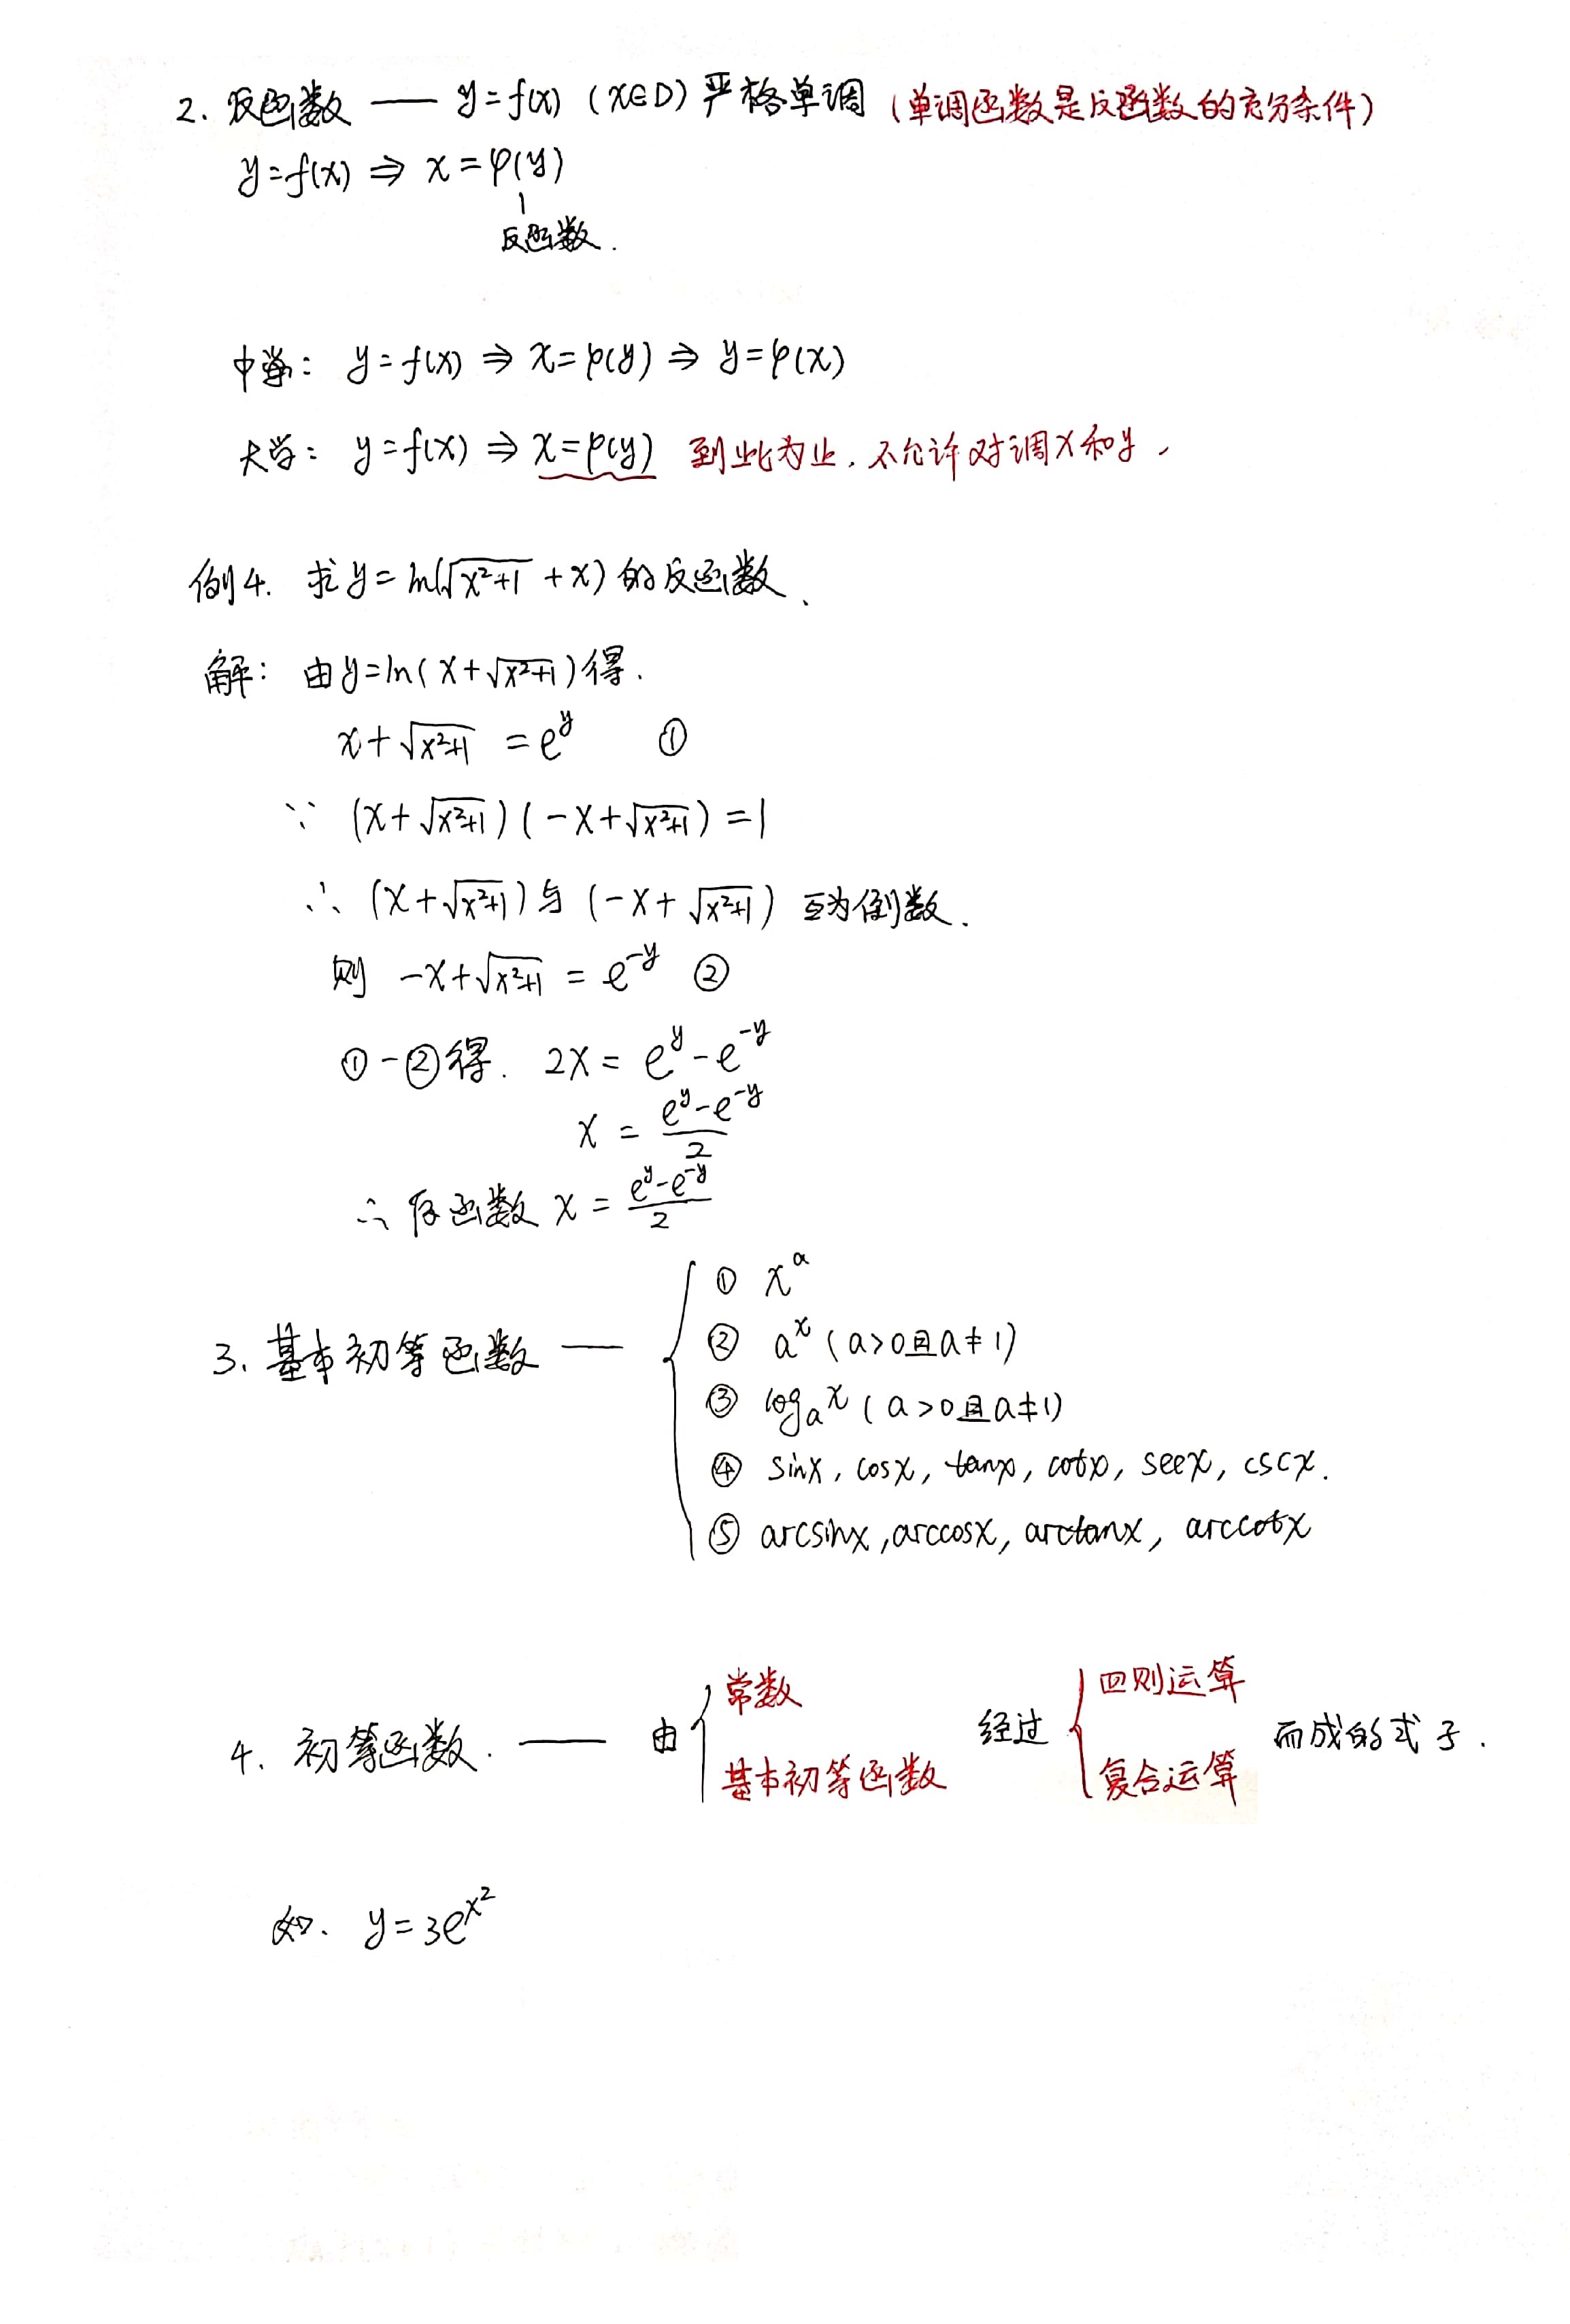 2. 反函数 —— y=f(x) (x∈D) 严格单调 (单调函数是反函数的充分条件)
y=f(x) ⇒ x=φ(y)
反函数.
中学: y=f(x) ⇒ x=φ(y) ⇒ y=φ(x)
大学: y=f(x) ⇒ x=φ(y) 到此为止. 不允许对调x和y,
例4. 求y=ln(√(x²+1) +x) 的反函数、
解: 由y=ln(x+√(x²+1))得.
x+√(x²+1) = e^y ①
∵ (x+√(x²+1))(-x+√(x²+1)) =1
∴ (x+√(x²+1))与 (-x+√(x²+1)) 互为倒数.
则 -x+√(x²+1) = e^(-y) ②
①-②得. 2x = e^y - e^(-y)
x = (e^y - e^(-y))/2
∴ 反函数 x = (e^y - e^(-y))/2
3. 基本初等函数 —— { ① x^a
② a^x (a>0且a≠1)
③ log_a x (a>0且a≠1)
④ sinx, cosx, tanx, cotx, secx, cscx.
⑤ arcsinx, arccosx, arctanx, arccotx
4. 初等函数. —— 由 { 常数 基本初等函数 经过 { 四则运算 复合运算 而成的式子.
如. y=3e^(x²)